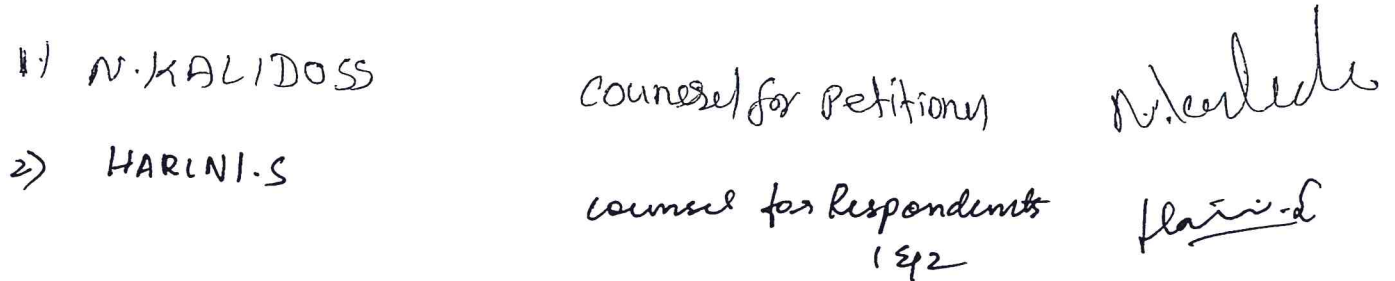 1) N.KALIDOSS
counsel for Petitioner
2) HARINI.S
counsel for Respondents
1 & 2
Harini.S